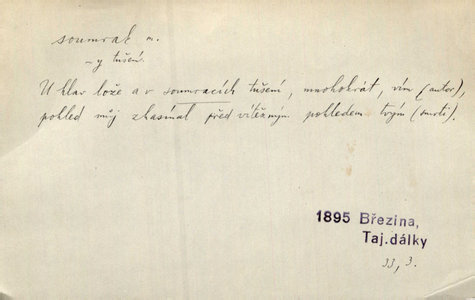 soumrak m.
-y tušení.
U hlav lože a v soumracích tušení, mnohokrát, vím (autor),
pohled můj zhasínal před vítězným pohledem tvým (smrti).
1895 Březina,
Taj.dálky
33, 3.